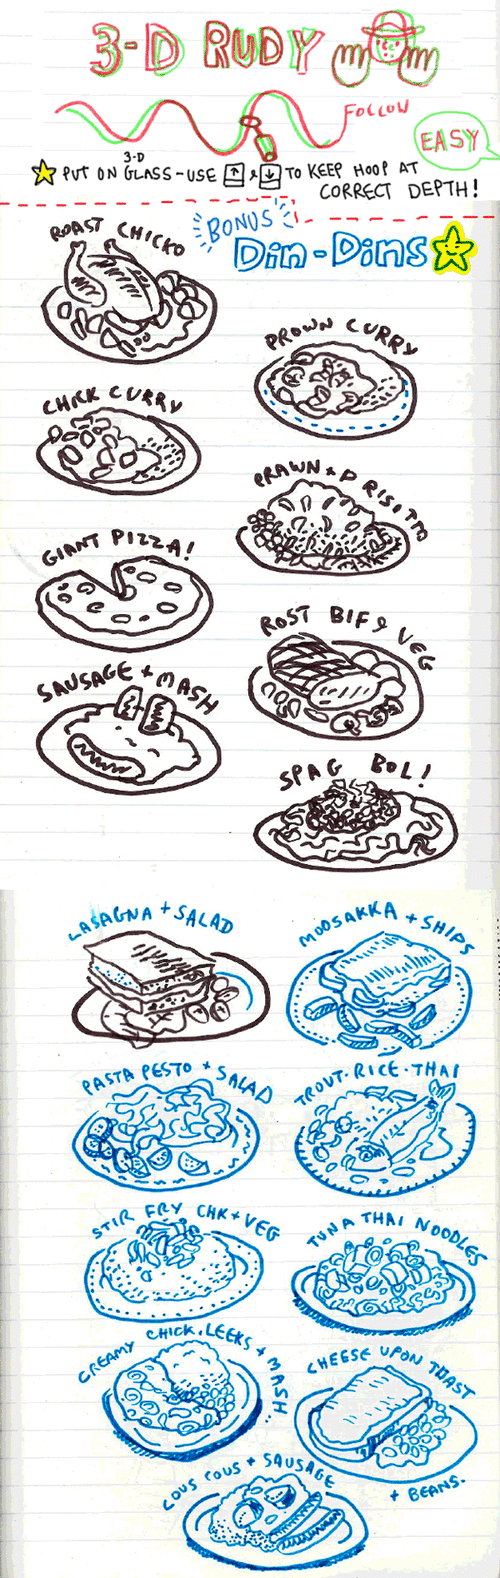 3-D RUDY
FOLLOW
EASY
PUT ON 3-D GLASS - USE & TO KEEP HOOP AT
CORRECT DEPTH!
BONUS
Din-Dins
ROAST CHICKO
PROWN CURRY
CHICK CURRY
PRAWN + P RISITTO
GIANT PIZZA!
ROST BIF & VEG
SAUSAGE + MASH
SPAG BOL!
LASAGNA + SALAD
MOOSAKKA + SHIPS
PASTA PESTO + SALAD
TROUT. RICE. THAI
STIR FRY CHK + VEG
TUNA THAI NOODLES
CREAMY CHICK. LEEKS + MASH...
CHEESE UPON TOAST
+ BEANS.
COUS COUS + SAUSAGE